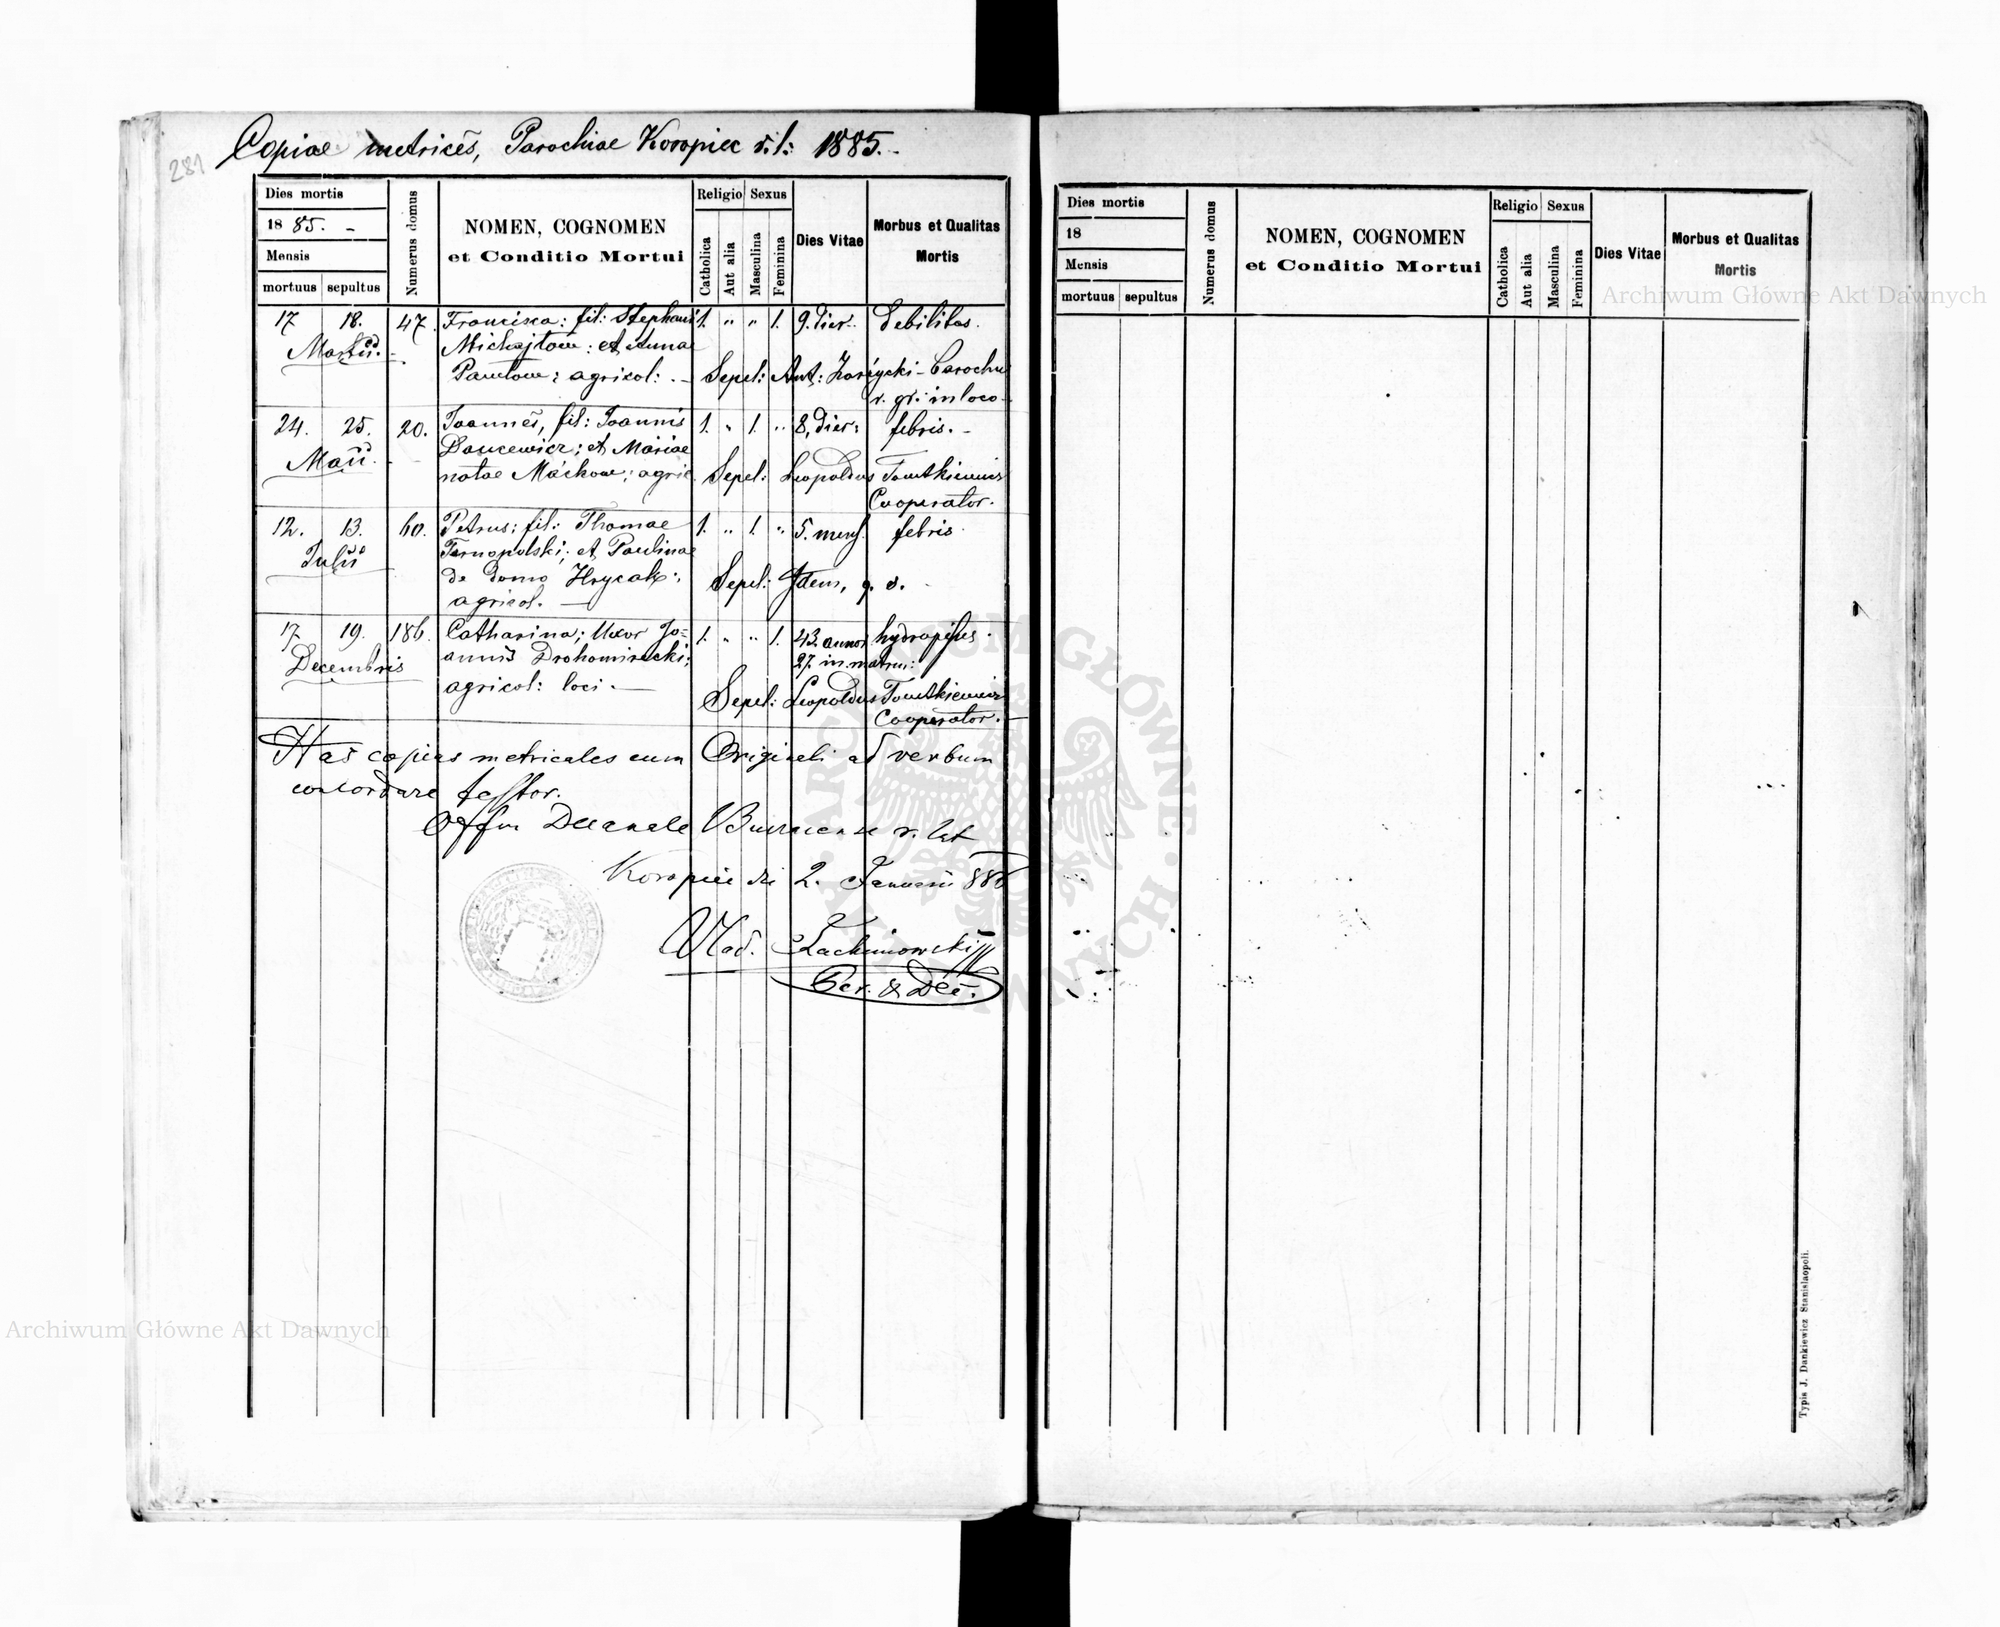 281
Copiae metrices, Parochiae Koropiec r. l: 1885.
Dies mortis
1885.
Mensis
mortuus sepultus
Numerus domus
NOMEN, COGNOMEN
et Conditio Mortui
Religio
Catholica
Aut alia
Sexus
Masculina
Feminina
Dies Vitae
Morbus et Qualitas
Mortis
17 18. 47. Francisca: fil: Stephani 1. " " 1. 9. dier. Debilitas.
Martii. Michajłow: et Annae
Pawłow: agricol: . – Sepel: Ant: Zarzycki – Parochus
r. gr: in loco –
24. 25. 20. Joannes, fil: Joannis 1. " 1. " 8, dier: febris. –
Maii. – Daucewicz; et Mariae
natae Maćkow; agric. Sepel: Leopoldus
Cooperator.
12. 13. 60. Petrus; fil: Thomae 1. " 1. " 5. mens. febris.
Julii Tarnopolski; et Paulinae
de domo Hrycak; Sepel: Idem, q. s.
agricol. –
17 19. 186. Catharina; Uxor Jo= 1. " " 1. 43. annor hydropisis.
Decembris annis Drohomirecki; 27. in matrm:
agricol: loci. – Sepel: Leopoldus
Cooperator. –
Has copias metricales cum Originali ad verbum
concordare testor.
Offm Decanale r. lat
Koropiec die 2. Januarii 886
Vlad.
Par. & Dec.
Dies mortis
18
Mensis
mortuus sepultus
Numerus domus
NOMEN, COGNOMEN
et Conditio Mortui
Religio
Catholica
Aut alia
Sexus
Masculina
Feminina
Dies Vitae
Morbus et Qualitas
Mortis
Archiwum Główne Akt Dawnych
ARCHIWUM GŁÓWNE AKT DAWNYCH
Archiwum Główne Akt Dawnych
Typis J. Dankiewicz Stanislaopoli.